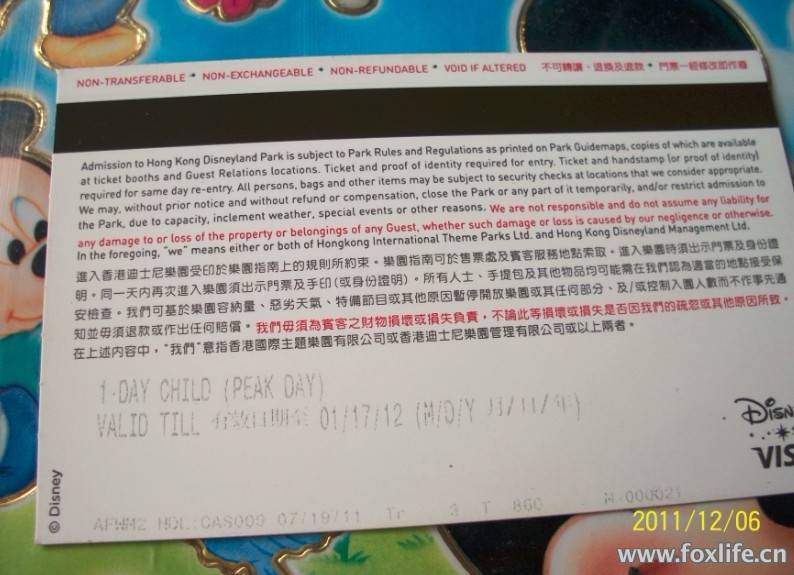 NON-TRANSFERABLE * NON-EXCHANGEABLE * NON-REFUNDABLE * VOID IF ALTERED 不可轉讓、退換及退款 * 門票一經修改即作廢
Admission to Hong Kong Disneyland Park is subject to Park Rules and Regulations as printed on Park Guidemaps, copies of which are available
at ticket booths and Guest Relations locations. Ticket and proof of identity required for entry. Ticket and handstamp (or proof of identity)
required for same day re-entry. All persons, bags and other items may be subject to security checks at locations that we consider appropriate.
We may, without prior notice and without refund or compensation, close the Park or any part of it temporarily, and/or restrict admission to
the Park, due to capacity, inclement weather, special events or other reasons. We are not responsible and do not assume any liability for
any damage to or loss of the property or belongings of any Guest, whether such damage or loss is caused by our negligence or otherwise.
In the foregoing, "we" means either or both of Hongkong International Theme Parks Ltd. and Hong Kong Disneyland Management Ltd.
進入香港迪士尼樂園受印於樂園指南上的規則所約束。樂園指南可於售票處及賓客服務地點索取。進入樂園時須出示門票及身份證
明。同一天內再次進入樂園須出示門票及手印(或身份證明)。所有人士、手提包及其他物品均可能需在我們認為適當的地點接受保
安檢查。我們可基於樂園容納量、惡劣天氣、特備節目或其他原因暫停開放樂園或其任何部分、及/或控制入園人數而不作事先通
知並毋須退款或作出任何賠償。我們毋須為賓客之財物損壞或損失負責，不論此等損壞或損失是否因我們的疏忽或其他原因所致。
在上述內容中，"我們"意指香港國際主題樂園有限公司或香港迪士尼樂園管理有限公司或以上兩者。
1-DAY CHILD (PEAK DAY)
VALID TILL 有效日期至 01/17/12 (M/D/Y 月/日/年)
DISN
VIS
© Disney
AFWM2 MDL:CAS009 07/19/11 Tr 3 T 860 M-000021
2011/12/06
www.foxlife.cn